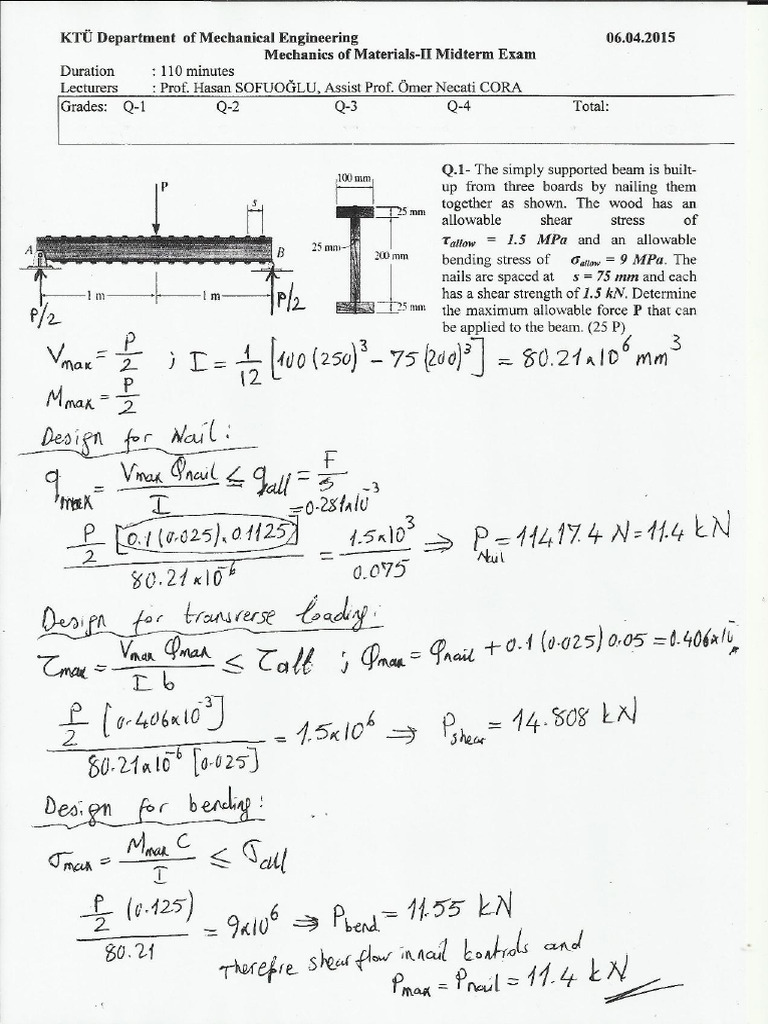 KTÜ Department of Mechanical Engineering 06.04.2015
Mechanics of Materials-II Midterm Exam
Duration : 110 minutes
Lecturers : Prof. Hasan SOFUOĞLU, Assist Prof. Ömer Necati CORA
Grades: Q-1 Q-2 Q-3 Q-4 Total:
P
s
A
B
1 m
1 m
P/2
P/2
100 mm
25 mm
25 mm
200 mm
25 mm
Q.1- The simply supported beam is built-
up from three boards by nailing them
together as shown. The wood has an
allowable shear stress of
τallow = 1.5 MPa and an allowable
bending stress of σallow = 9 MPa. The
nails are spaced at s = 75 mm and each
has a shear strength of 1.5 kN. Determine
the maximum allowable force P that can
be applied to the beam. (25 P)
Vmax = P/2 ; I = 1/12 [100(250)³ - 75(200)³] = 80.21x10⁶ mm³
Mmax = P/2
Design for Nail:
qmax = Vmax Qnail / I ≤ qall = F/s
=0.281x10⁻³
P/2 [0.1(0.025)x0.1125] / 80.21x10⁻⁶ = 1.5x10³ / 0.075 ⇒ PNail = 11417.4 N = 11.4 kN
Design for transverse loading:
τmax = Vmax Qmax / I b ≤ τall ; Qmax = Qnail + 0.1(0.025)0.05 = 0.406x10⁻
P/2 [0.406x10⁻³] / 80.21x10⁻⁶ [0.025] = 1.5x10⁶ ⇒ Pshear = 14.808 kN
Design for bending:
σmax = Mmax C / I ≤ σall
P/2 (0.125) / 80.21 = 9x10⁶ ⇒ Pbend = 11.55 kN
Therefre shear flow in nail kontrols and
Pmax = Pnail = 11.4 kN